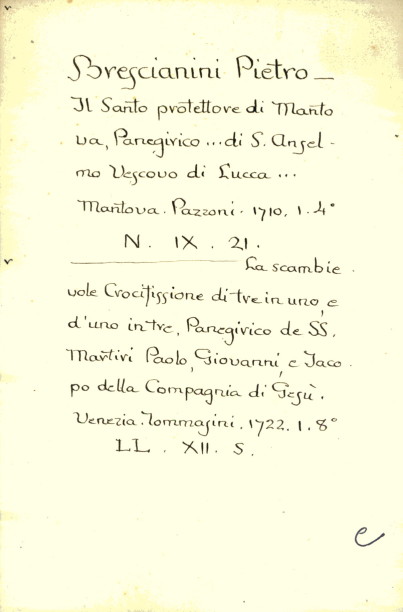 Brescianini Pietro —
Il Santo protettore di Manto
va, Panegirico ... di S. Ansel -
mo Vescovo di Lucca ...
Mantova. Pazzoni. 1710. 1. 4°
N. IX. 21.
La scambie
vole Crocifissione di tre in uno, e
d'uno in tre, Panegirico de SS.
Martiri Paolo, Giovanni, e Jaco
po della Compagnia di Gesù.
Venezia. Tommasini. 1722. 1. 8°
LL. XII. S.
e